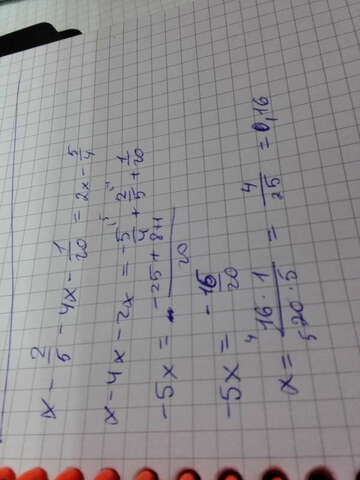 x - 2/5 - 4x - 1/20 = 2x - 5/4
x - 4x - 2x = -5/4 + 2/5 + 1/20
-5x = (-25 + 8 + 1)/20
-5x = -16/20
x = (16 · 1)/(20 · 5) = 4/25 = 0,16